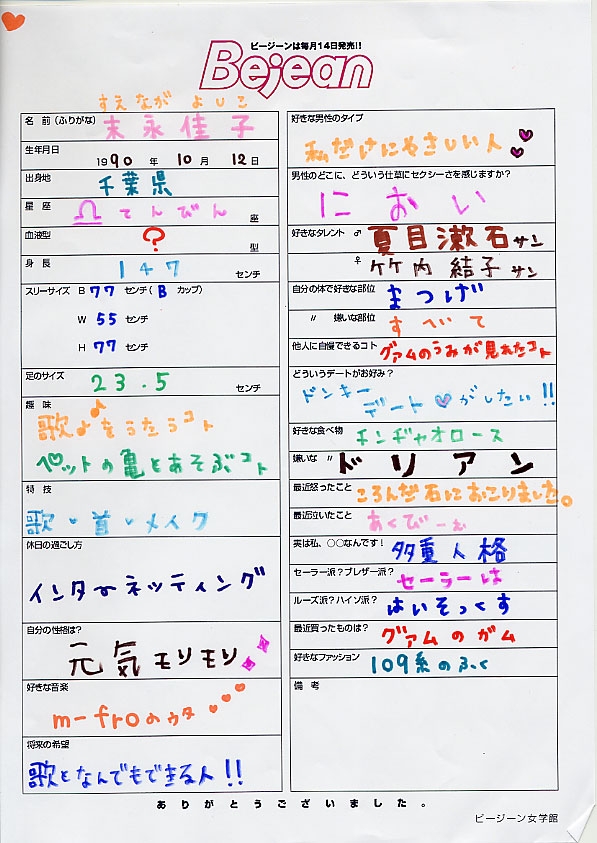 ビージーンは毎月14日発売!!
Bejean
すえ なが よしこ
名 前 (ふりがな) 末永佳子
生年月日
1990 年 10 月 12 日
出身地 千葉県
星 座 ♎ てんびん 座
血液型 ? 型
身 長 147 センチ
スリーサイズ B 77 センチ( B カップ)
W 55 センチ
H 77 センチ
足のサイズ 23.5 センチ
趣 味
歌♪をうたうコト
ペットの亀とあそぶコト
特 技
歌・首・メイク
休日の過ごし方
インターネッティング
自分の性格は?
元気モリモリ
好きな音楽
m-froのウタ
将来の希望
歌となんでもできる人!!
好きな男性のタイプ
私だけにやさしい人
男性のどこに、どういう仕草にセクシーさを感じますか?
におい
好きなタレント ♂ 夏目漱石サン
♀ 竹内結子サン
自分の体で好きな部位 まつげ
〃 嫌いな部位 すべて
他人に自慢できるコト グァムのうみが見れたコト
どういうデートがお好み?
ドンキー
デート♡がしたい!!
好きな食べ物 チンヂャオロース
嫌いな 〃 ドリアン
最近怒ったこと ころんだ石におこりました。
最近泣いたこと あくびーぇ
実は私、○○なんです! 多重人格
セーラー派?ブレザー派? セーラーは
ルーズ派?ハイソ派? はいそっくす
最近買ったものは? グァムのガム
好きなファッション 109系のふく
備 考
ありがとうございました。
ビージーン女学館